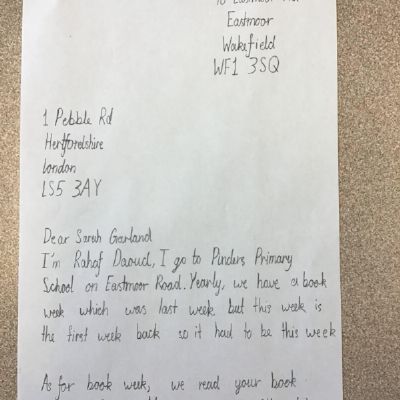 Eastmoor
Wakefield
WF1 3SQ
1 Pebble Rd
Hertfordshire
London
LS5 3AY
Dear Sarah Garland
I'm Rahaf Daoud, I go to Pinders Primary
School on Eastmoor Road. Yearly, we have a book
week which was last week but this week is
the first week back so it had to be this week
As for book week, we read your book